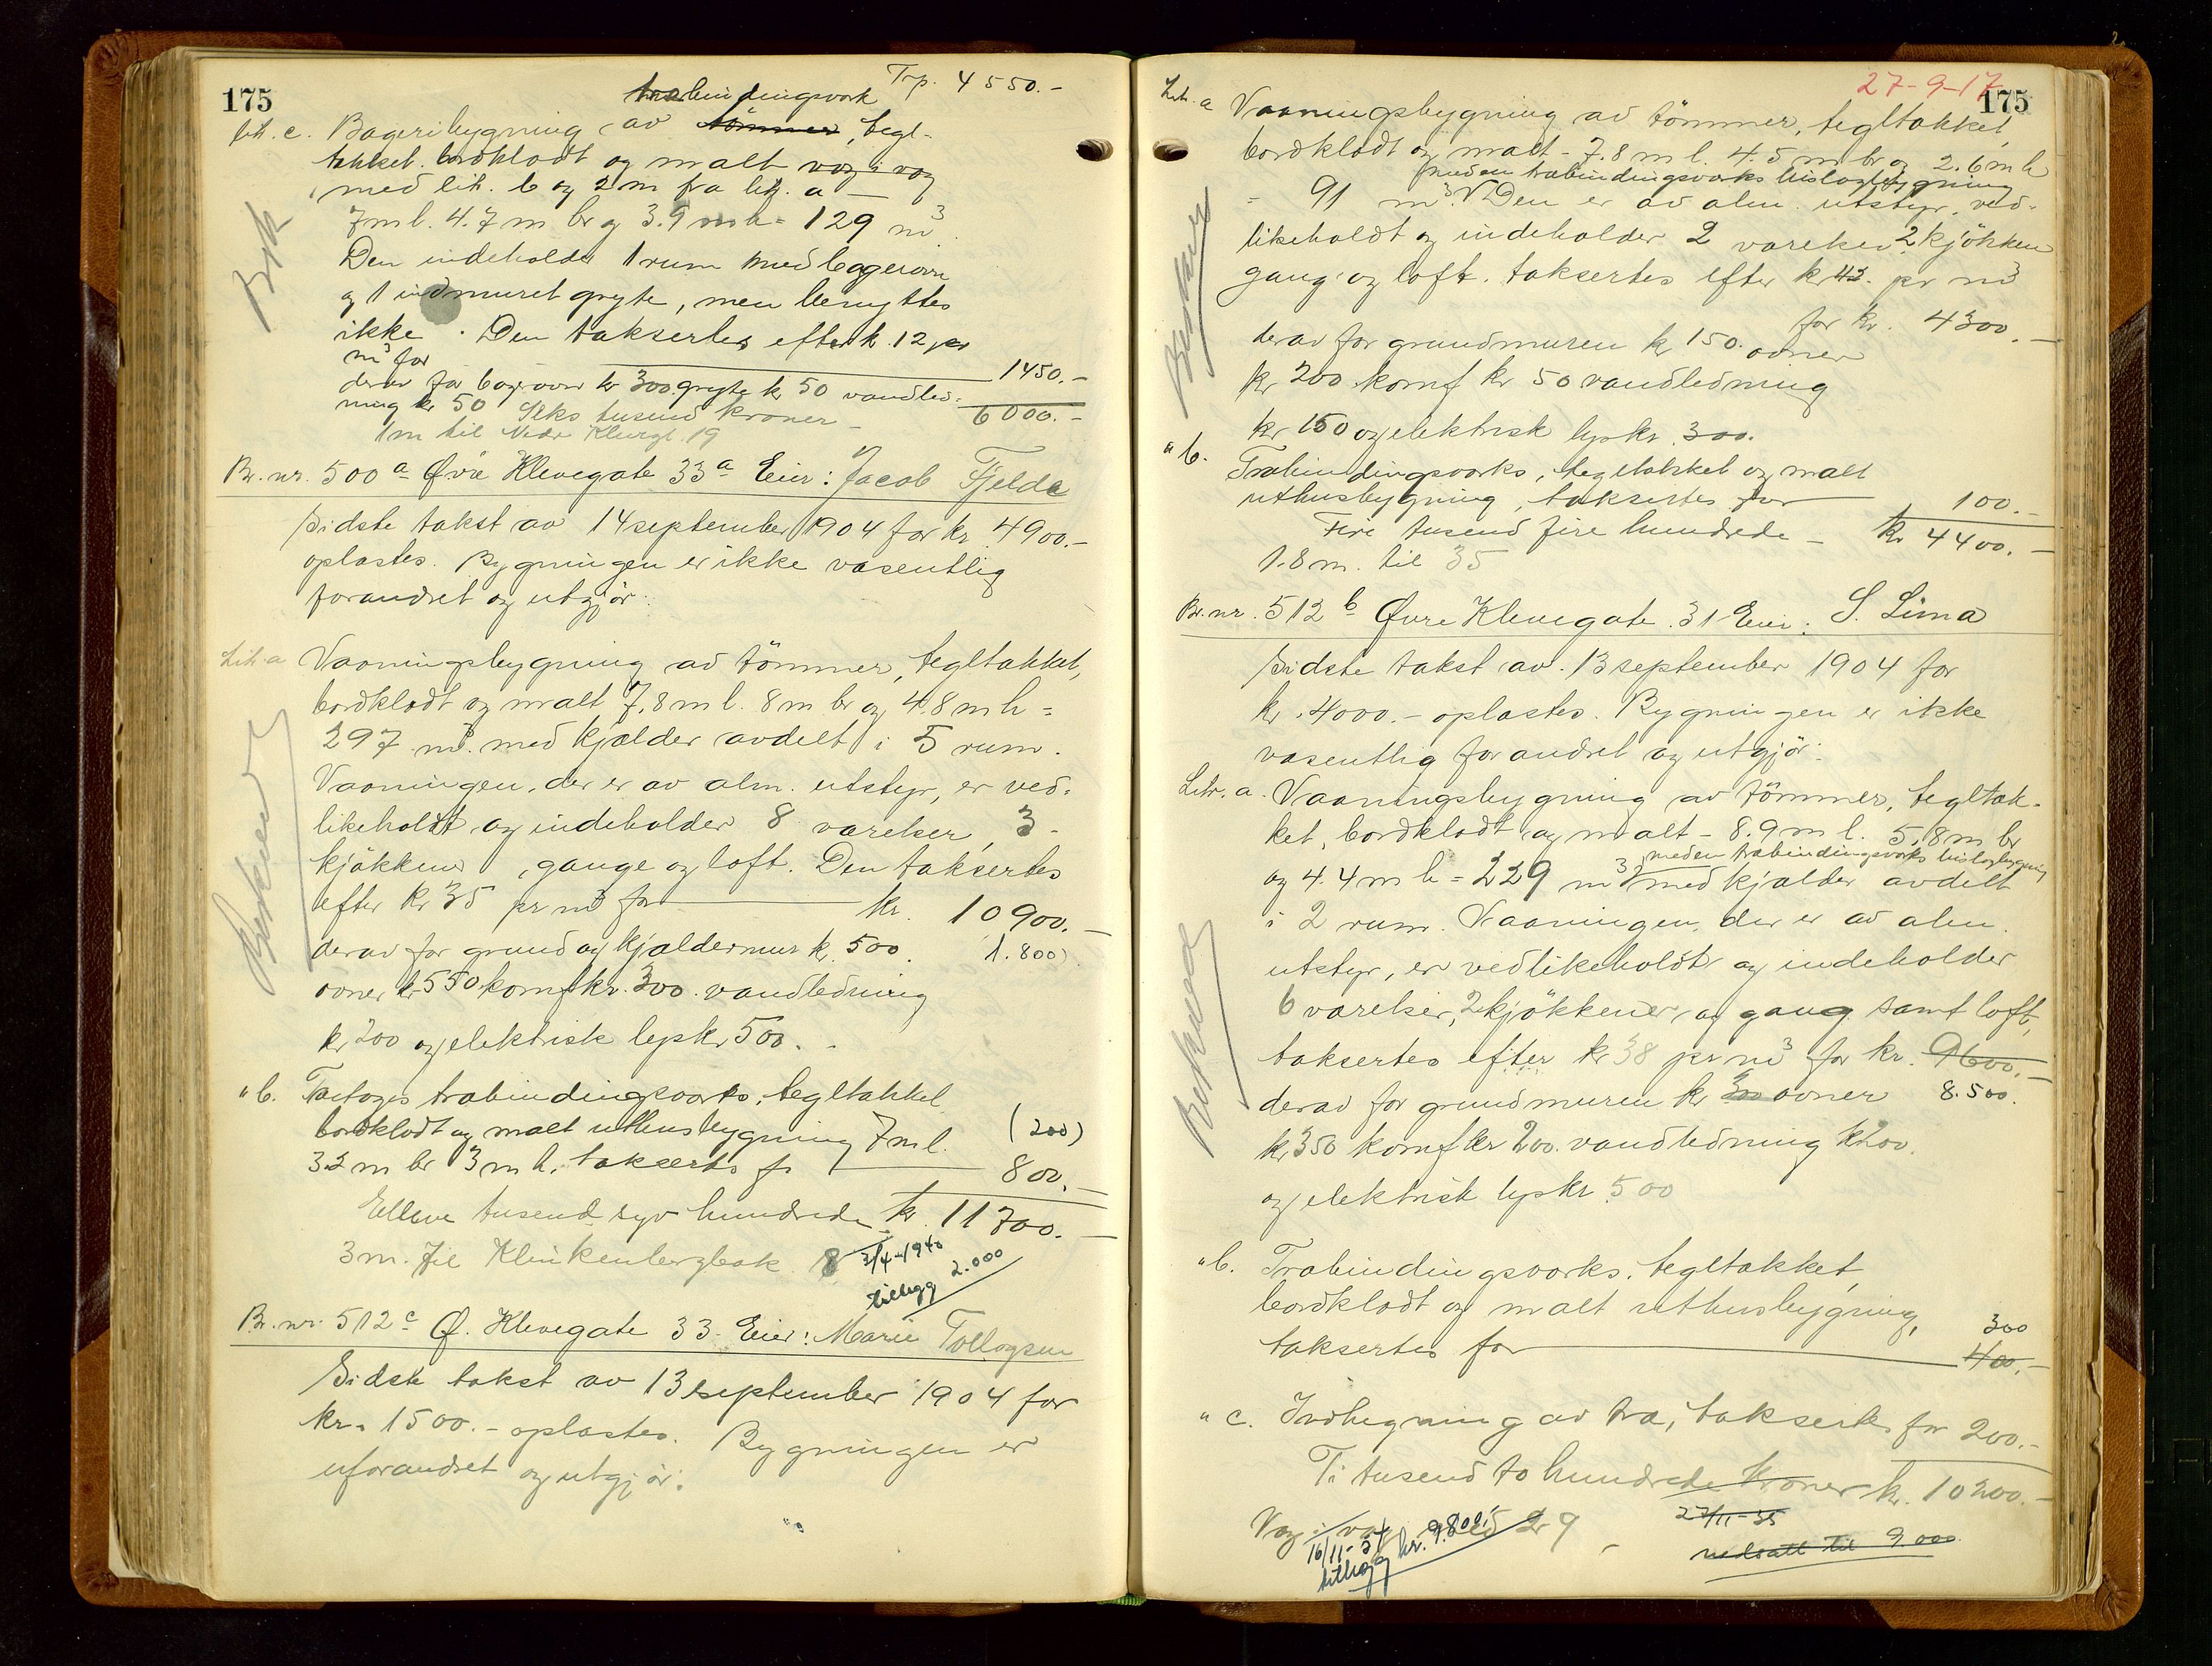 175
Trp. 4550.-
træbindingsverk
Lit. c. Bageribygning av tömmer, tegl-
tækket, bordklædt og malt væg i væg
med lit. b og 2 m fra lit. a -
7 m l. 4.7 m br og 3.9 m h = 129 m³.
Den indeholder 1 rum med bagerovn
og 1 indmuret gryte, men benyttes
ikke. Den taksertes efter kr. 12 pr
m³ for 1450.-
derav for bagerovn kr 300 gryte kr 50 vandled-
ning kr 50 Seks tusend kroner - 6000.-
1 m til Nedr Klevegt. 19
Br. nr. 500a Øvre Klevegate 33a Eier: Jacob Fjelde
Sidste takst av 14 september 1904 for kr 4900.-
oplæstes. Bygningen er ikke væsentlig
forandret og utgjör:
Lit. a Vaaningsbygning av tömmer, tegltækket,
bordklædt og malt 7.8 m l. 8 m br og 4.8 m h =
297 m³. med kjælder avdelt i 5 rum.
Vaaningen, der er av alm. utstyr, er ved-
likeholdt og indeholder 8 værelser, 3
kjökkener, gange og loft. Den taksertes
efter kr 35 pr m³ for kr. 10900.-
derav for grund og kjældermur kr. 500. (1.800)
ovner kr 550 komf kr. 300. vandledning
kr 200 og elektrisk lys kr 500.
" b. Toetages træbindingsverks, tegltækket
bordklædt og malt uthusbygning 7 m l. (200)
3.2 m br 3 m h, taksertes for 800.-
Elleve tusend syv hundrede kr. 11700.-
3 m. til Klinkenbergbak 8 3/4-1940
tillegg 2.000
Br. nr. 512c Ø. Klevegate 33. Eier: Marie Tollagsen
Sidste takst av 13 september 1904 for
kr. 1500.- oplæstes. Bygningen er
uforandret og utgjör:
Beskrev
27-9-17
175
Lit. a Vaaningsbygning av tömmer, tegltækket,
bordklædt og malt - 7.8 m l. 4.5 m br og 2.6 m h
med en træbindingsverks bislagbygning
= 91 m³. Den er av alm. utstyr, ved-
likeholdt og indeholder 2 værelser 2 kjökken
gang og loft. taksertes efter kr 43. pr m³
for kr. 4300.-
derav for grundmuren kr 150. ovner
kr 200 komf kr 50 vandledning
kr 150 og elektrisk lys kr. 300.
" b. Træbindingsverks, tegltækket og malt
uthusbygning, taksertes for 100.-
Fire tusend fire hundrede - kr 4400.-
1.8 m. til 35
Br. nr. 512b Øvre Klevegate 31 Eier: S. Lima
Sidste takst av 13 september 1904 for
kr. 4000.- oplæstes. Bygningen er ikke
væsentlig forandret og utgjör:
Litr. a. Vaaningsbygning av tömmer, tegltæk-
ket, bordklædt og malt - 8.9 m l. 5.8 m br
med en træbindingsverks bislagbygning
og 4.4 m h = 229 m³ med kjælder avdelt
i 2 rum. Vaaningen, der er av alm.
utstyr, er vedlikeholdt og indeholder
6 værelser, 2 kjökkener, og gang samt loft,
taksertes efter kr 38 pr m³ for kr. 9600.-
derav for grundmuren kr 300 ovner 8.500.
kr 350 komf kr 200. vandledning kr 200.
og elektrisk lys kr 500
" b. Træbindingsverks, tegltækket,
bordklædt og malt uthusbygning, 300
taksertes for 400.-
" c. Indhegning av træ, taksertes for 200.-
Ti tusend to hundrede kroner kr. 10200.-
Væg i væg med 29 27/11-35
16/11-54 kr. 9.800. nedsatt til 9.000
tillegg